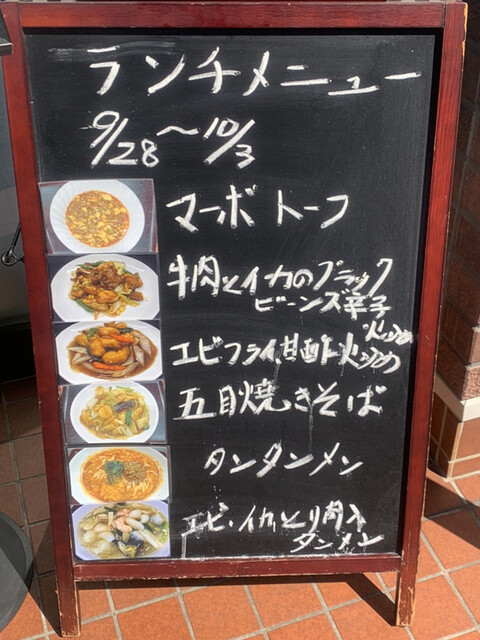 ランチメニュー
9/28〜10/3
マーボトーフ
牛肉とイカのブラック
ビーンズ辛子
炒め
エビフライ甘酢炒め
五目焼きそば
タンタンメン
エビ・イカ・とり肉入
タンメン